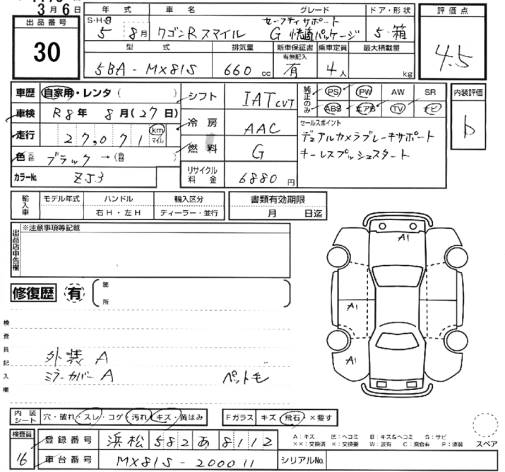 3月6日
年式 車名 グレード ドア・形状 評価点
出品番号 30
S・H・R 5年 8月 ワゴンRスマイル セーフティサポート G 快適パッケージ 5 箱 4.5
型式 排気量 新車保証書 有無記入 乗車定員 最大積載量
5BA-MX81S 660cc 有 4人 kg
車歴 自家用・レンタ( ) シフト IAT CVT 純正のみ PS PW AW SR 内装評価
車検 R8年 8月(27日) ABS エアB TV ナビ b
冷房 AAC セールスポイント
走行 27,071 km マイル デュアルカメラブレーキサポート
色 ブラック→( ) 燃料 G キーレスプッシュスタート
カラーNo. ZJ3 リサイクル料金 6880円
輸入車 モデル年式 ハンドル 輸入区分 書類有効期限
右H・左H ディーラー・並行 月 日迄
出品店申告欄 ※注意事項等記載
A1
修復歴 有 箇所
検査員記入欄
A1
外装A
ミラーカバーA ペットモ
A1
内装シート 穴・破れ スレ・コゲ 汚れ キズ・黄ばみ Fガラス キズ 飛石 ×要す
検査員 16 登録番号 浜松582あ8112
A:キズ E:ヘコミ B:キズ&ヘコミ S:サビ
スペア
車台番号 MX81S-200011 シリアルNo.